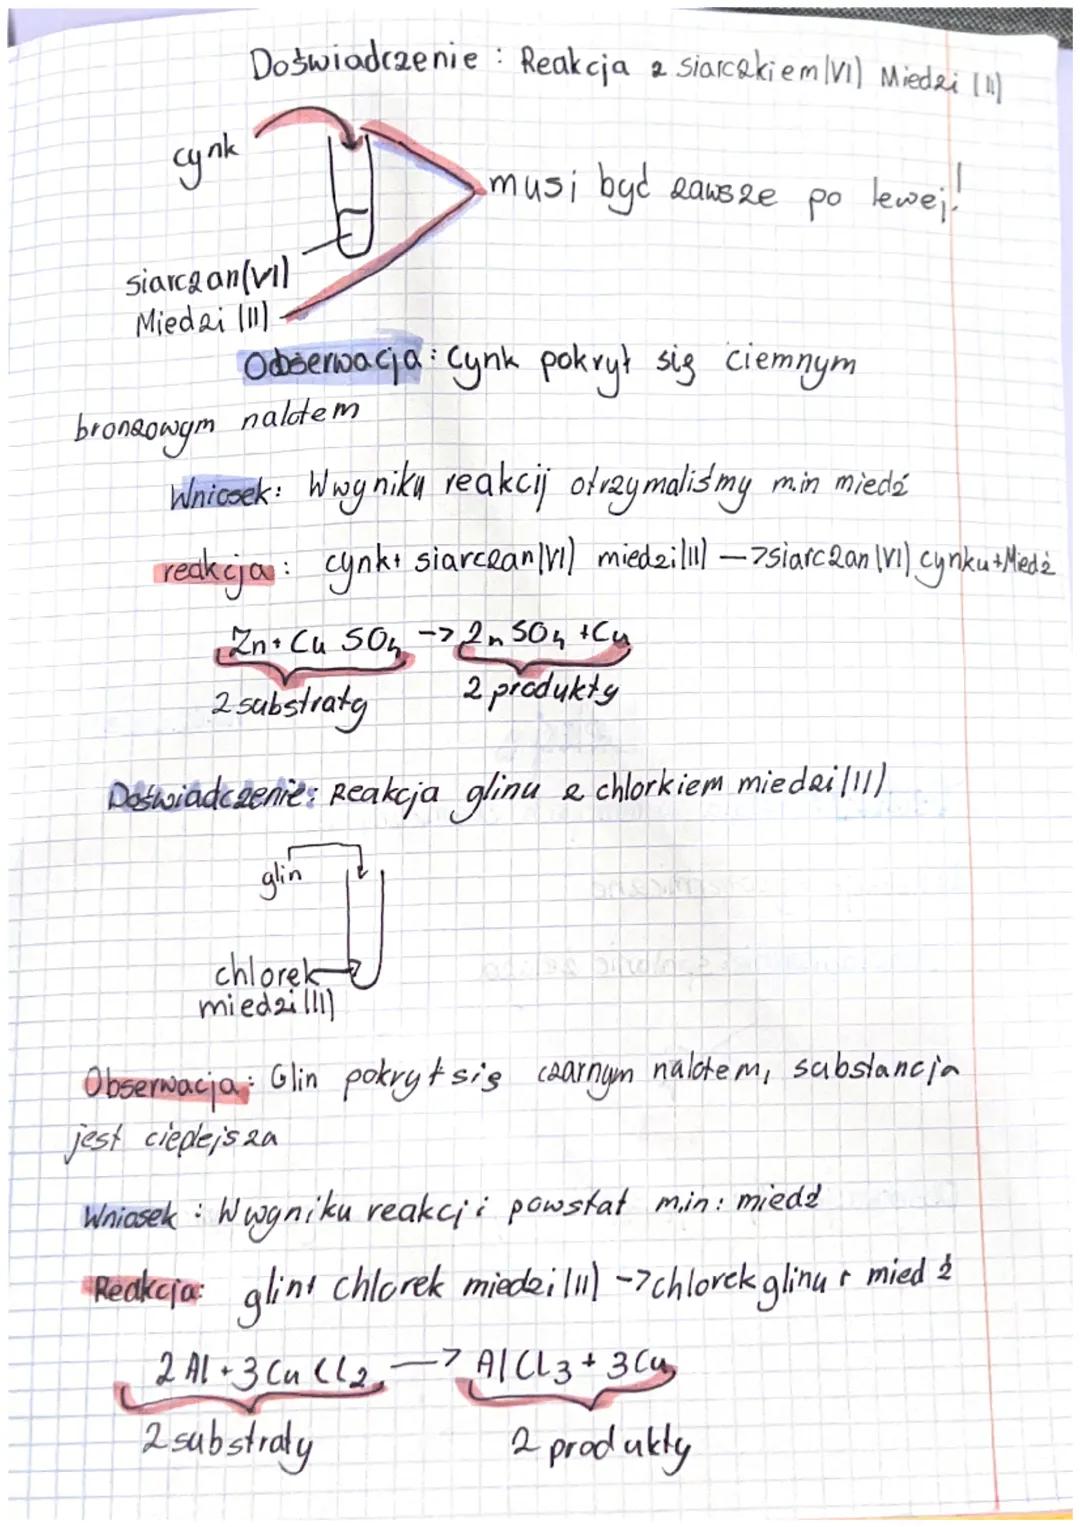 Doświadczenie: Reakcja z siarczkiem(VI) Miedzi (II)
cynk
musi być zawsze po lewej!
siarczan(VI)
Miedzi (II)
Obserwacja: Cynk pokrył się ciemnym
bronzowym nalotem
Wniosek: W wyniku reakcij otrzymaliśmy m.in miedź
reakcja: cynk + siarczan(VI) miedzi(II) —> siarczan(VI) cynku + Miedź
Zn + CuSO4 -> ZnSO4 + Cu
2 substraty 2 produkty
Doświadczenie: Reakcja glinu z chlorkiem miedzi(II)
glin
chlorek
miedzi(II)
Obserwacja: Glin pokrył się czarnym nalotem, substancja
jest cieplejsza
Wniosek: W wyniku reakcji powstał m.in: miedź
Reakcja: glin + chlorek miedzi(II) -> chlorek glinu + miedź
2 Al + 3 CuCl2 —> AlCl3 + 3 Cu
2 substraty 2 produkty